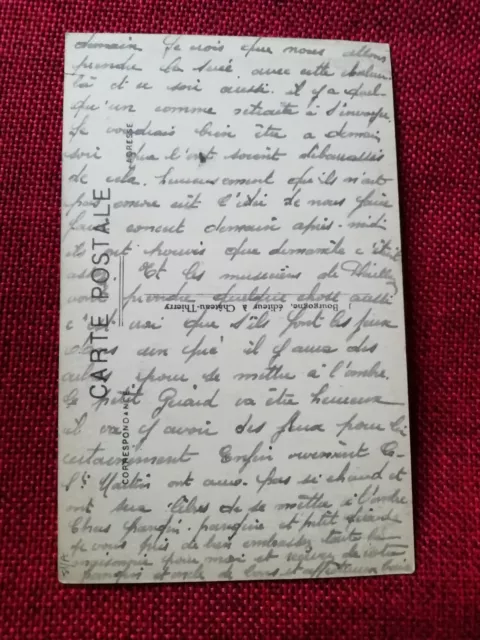 demain. Je crois que nous allons
prendre la suée avec cette chaleur
là et ce soir aussi. il y a quel-
qu'un comme retraite à s'envoyer
Je voudrais bien être a demain
soir que l'ont soient débarrassés
de cela. heureusement qu'ils n'ont
pas encore eut l'idée de nous faire
faire concert demain après-midi
ils ont prouvés que dimanche c'était
Et les musiciens de
prendre quelque chose aussi
c' vrai que s'ils font les feux
dans un qué il y aura des
pour se mettre à l'ombre.
Le petit Guard va être heureux
il va y avoir des feux pour lui
certainement Enfin vivement
ont aus. pas si chaud et
ont sera libres de se mettre à l'ombre
Chas parrain. et petit
Je vous prie de bien embrasser toute la
pour moi et recevez de votre
de bons et affectueux baisers
CARTE POSTALE
CORRESPONDANCE
ADRESSE
J. Bourgogne, éditeur à Château-Thierry